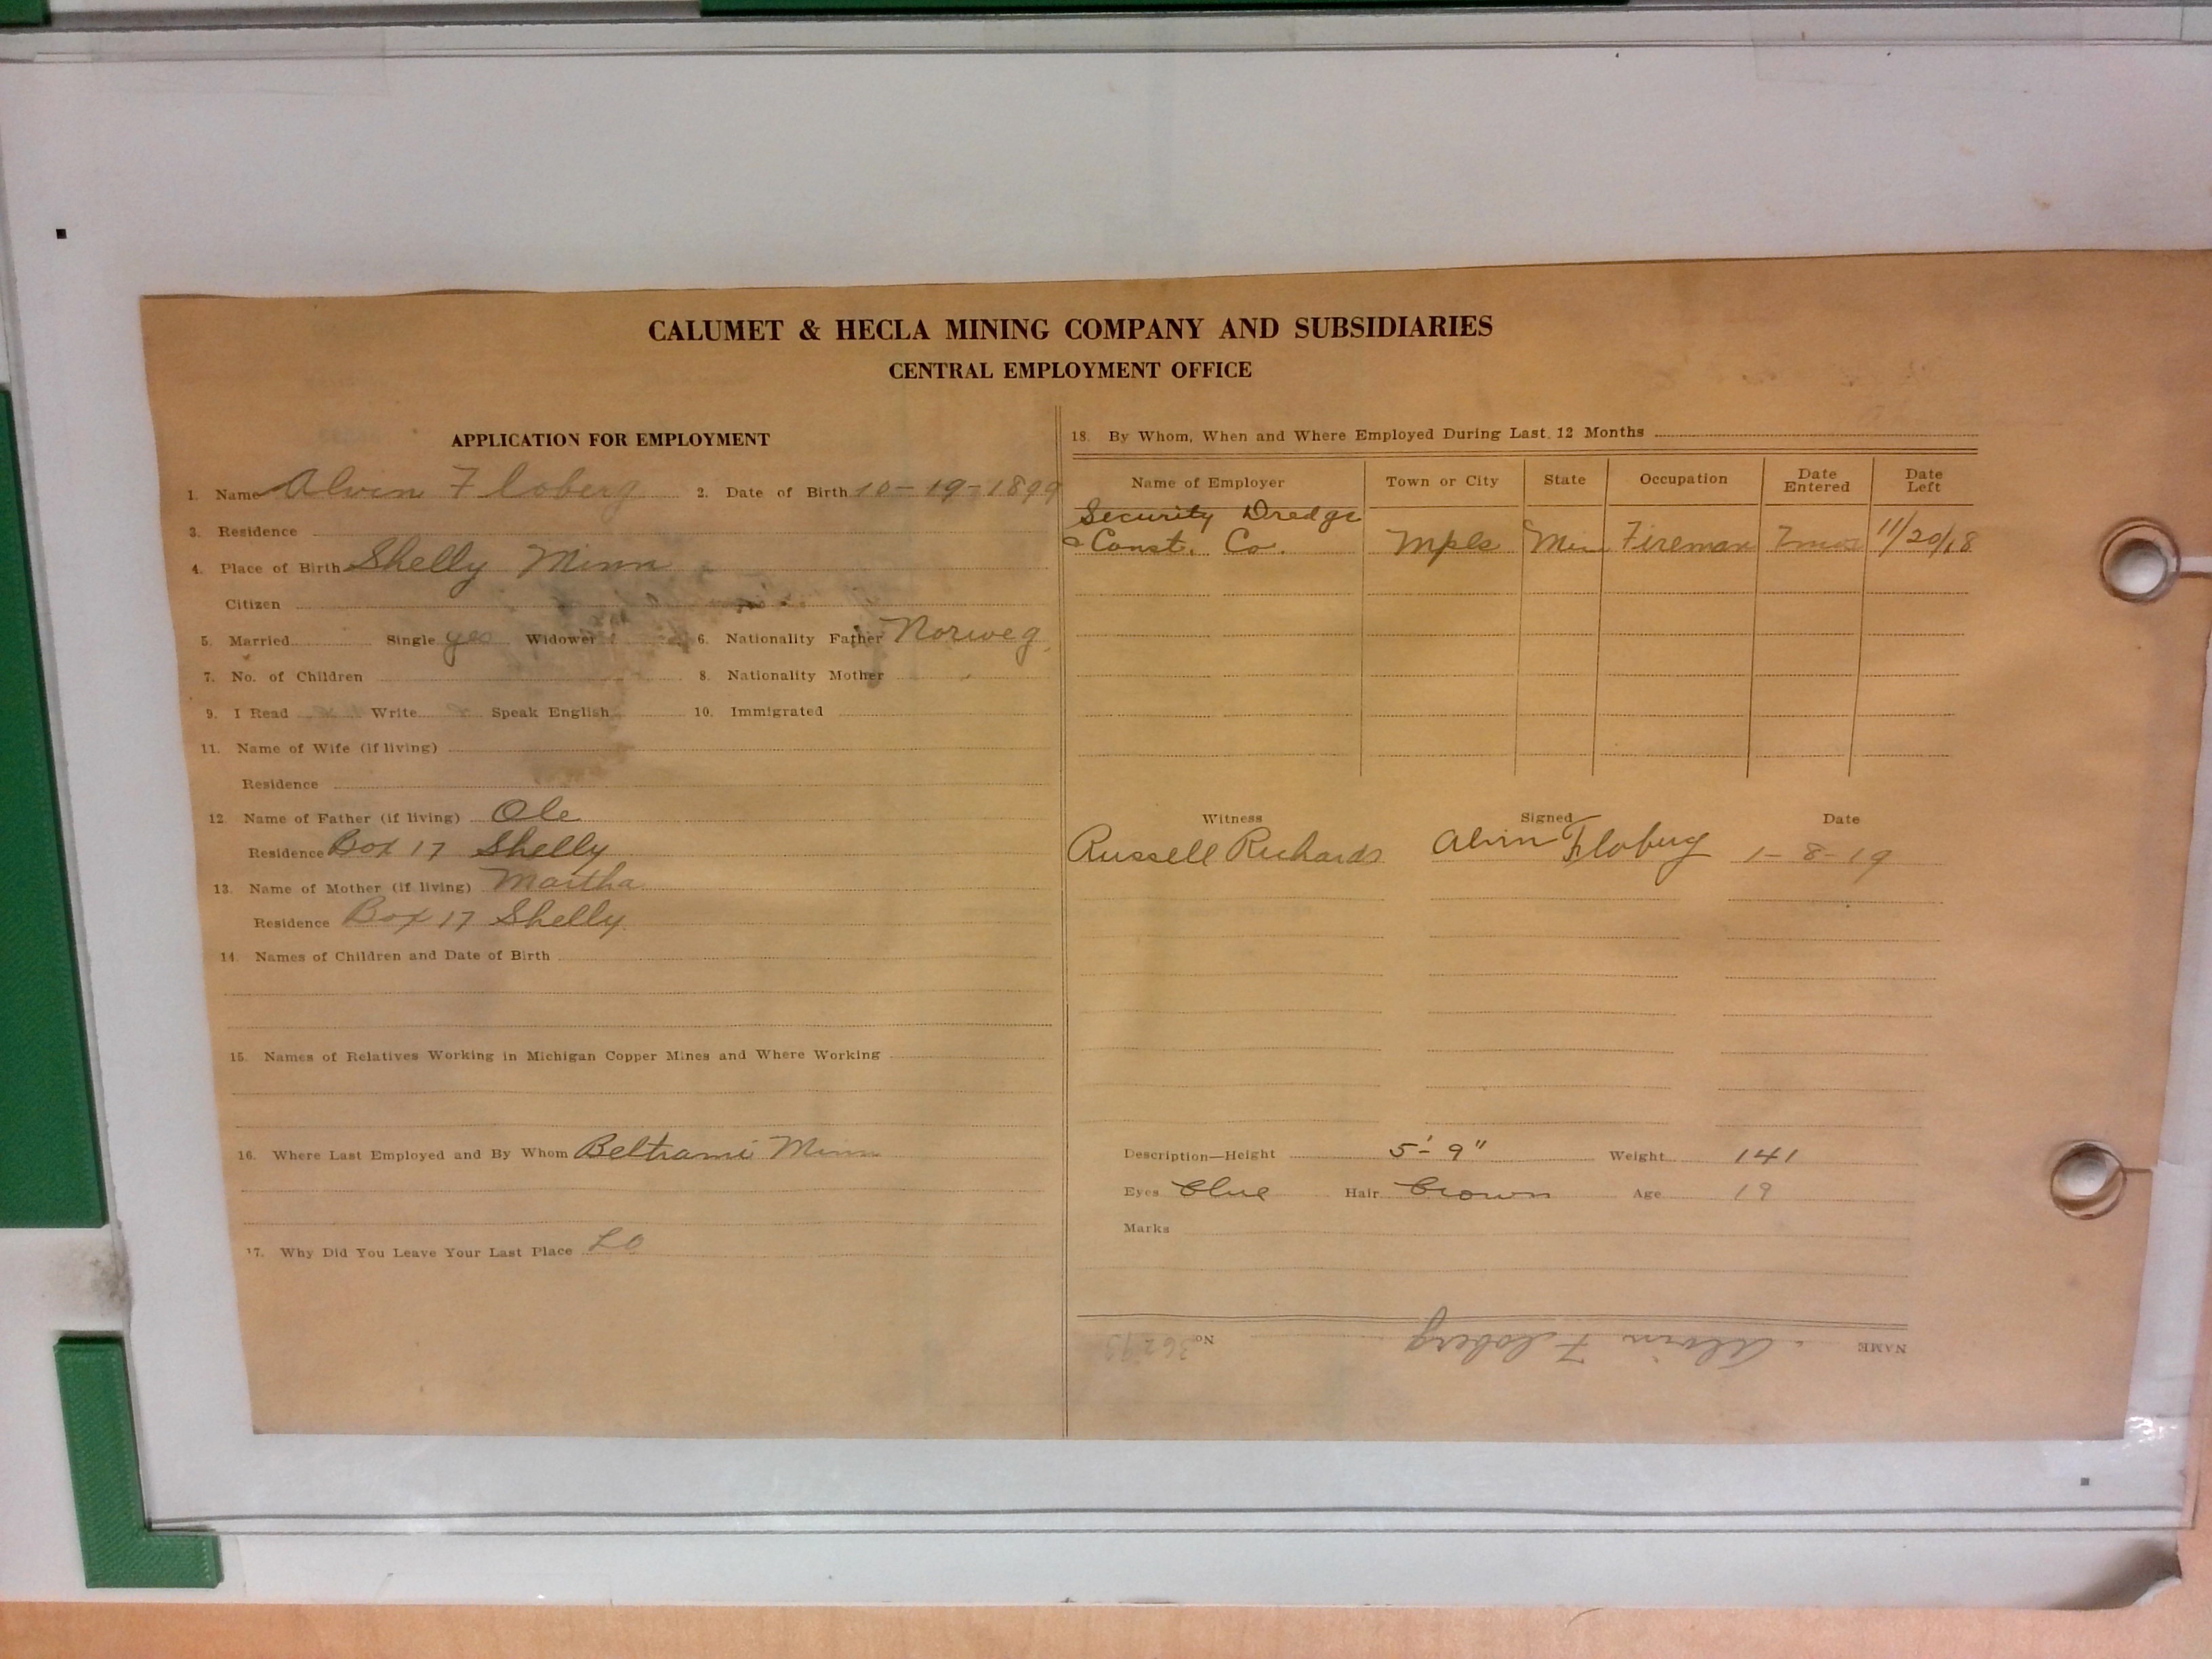 CALUMET & HECLA MINING COMPANY AND SUBSIDIARIES
CENTRAL EMPLOYMENT OFFICE
APPLICATION FOR EMPLOYMENT
1. Name Alvin Floberg 2. Date of Birth 10-19-1899
3. Residence
4. Place of Birth Shelly Minn
Citizen
5. Married Single yes Widower 6. Nationality Father Norweg
7. No. of Children 8. Nationality Mother
9. I Read Write Speak English 10. Immigrated
11. Name of Wife (if living)
Residence
12 Name of Father (if living) Ole
Residence Box 17 Shelly
13. Name of Mother (if living) Martha
Residence Box 17 Shelly
14. Names of Children and Date of Birth
15. Names of Relatives Working in Michigan Copper Mines and Where Working
16. Where Last Employed and By Whom Beltrami Minn
17. Why Did You Leave Your Last Place LO
18. By Whom, When and Where Employed During Last 12 Months
Name of Employer Town or City State Occupation Date Entered Date Left
Security Dredge
& Const. Co. Mpls Min Fireman 7 mos 11/20/18
Witness Signed Date
Russell Richards Alvin Floberg 1-8-19
Description—Height 5'-9" Weight 141
Eyes blue Hair brown Age 19
Marks
NAME Alvin Floberg No.